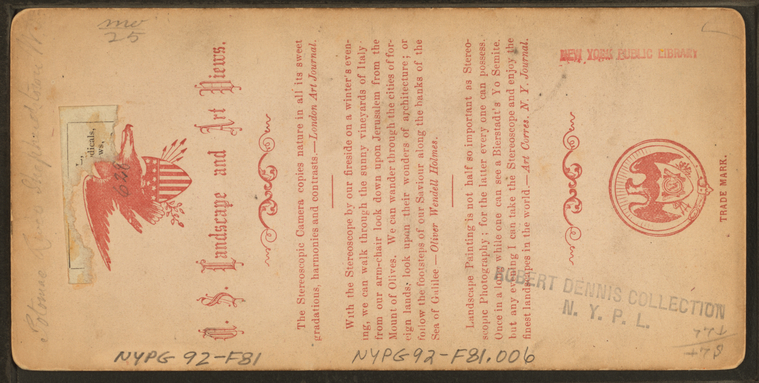 mo
25
dicals,
ws,
U. S. Landscape and Art Views.
The Stereoscopic Camera copies nature in all its sweet
gradations, harmonics and contrasts.—London Art Journal.
With the Stereoscope by our fireside on a winter's even-
ing, we can walk through the sunny vineyards of Italy
from our arm-chair look down upon Jerusalem from the
Mount of Olives. We can wander through the cities of for-
eign lands, look upon their wonders of architecture; or
follow the footsteps of our Saviour along the banks of the
Sea of Galilee.—Oliver Wendell Holmes.
Landscape Painting is not half so important as Stereo-
scopic Photography; for the latter every one can possess.
Once in a long while one can see a Bierstadt's Yo Semite,
but any evening I can take the Stereoscope and enjoy the
finest landscapes in the world.—Art Corres. N. Y. Journal.
TRADE MARK.
NEW YORK PUBLIC LIBRARY
ROBERT DENNIS COLLECTION
N. Y. P. L.
NYPG 92-F81
NYPG92-F81.006